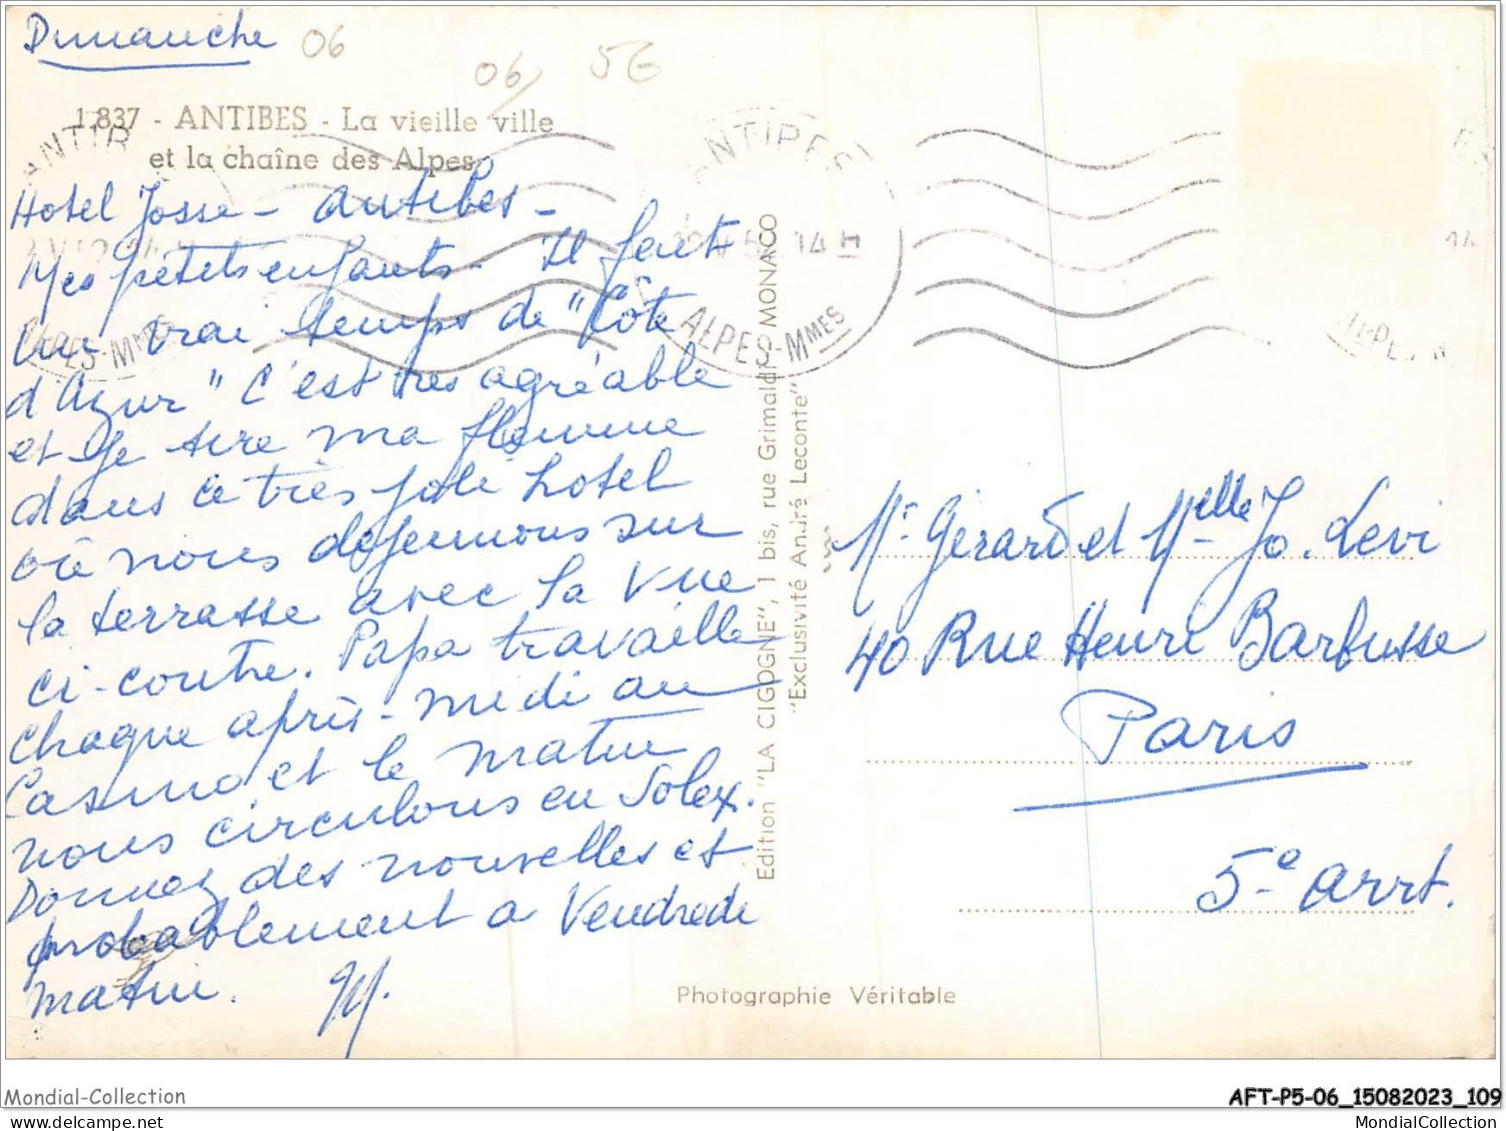 Dimanche
06
06/ 5E
1.837 - ANTIBES - La vieille ville
et la chaîne des Alpes
Hotel Josse - Antibes -
Mes petits enfants - Il fait
un vrai temps de "Côte
d'Azur" C'est très agréable
et je tire ma flemme
dans ce très joli hotel
où nous déjeunons sur
la terrasse avec la vue
ci-contre. Papa travaille
chaque après-midi au
Casino et le matin
nous circulons en Solex.
Donnez des nouvelles et
probablement a Vendredi
matin. M.
ANTIBES
14 H
ALPES-MMES
ANTIB
ALPES-MM
14
Edition "LA CIGOGNE", 1 bis, rue Grimaldi MONACO
"Exclusivité André Leconte"
Mr Gérard et Melle Jo. Levi
40 Rue Henri Barbusse
Paris
5e arrt.
Photographie Véritable
Mondial-Collection
AFT-P5-06_15082023_109
MondialCollection